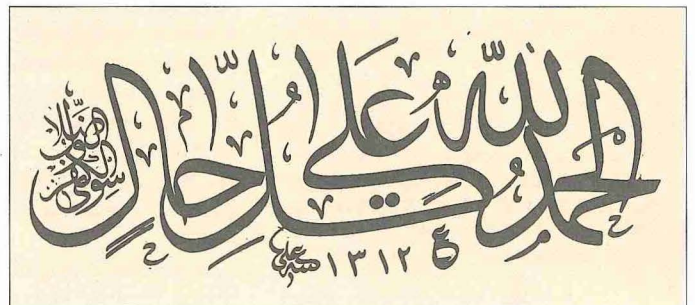 الحمد لله على كل حال
سوى الكفر
١٣١٢